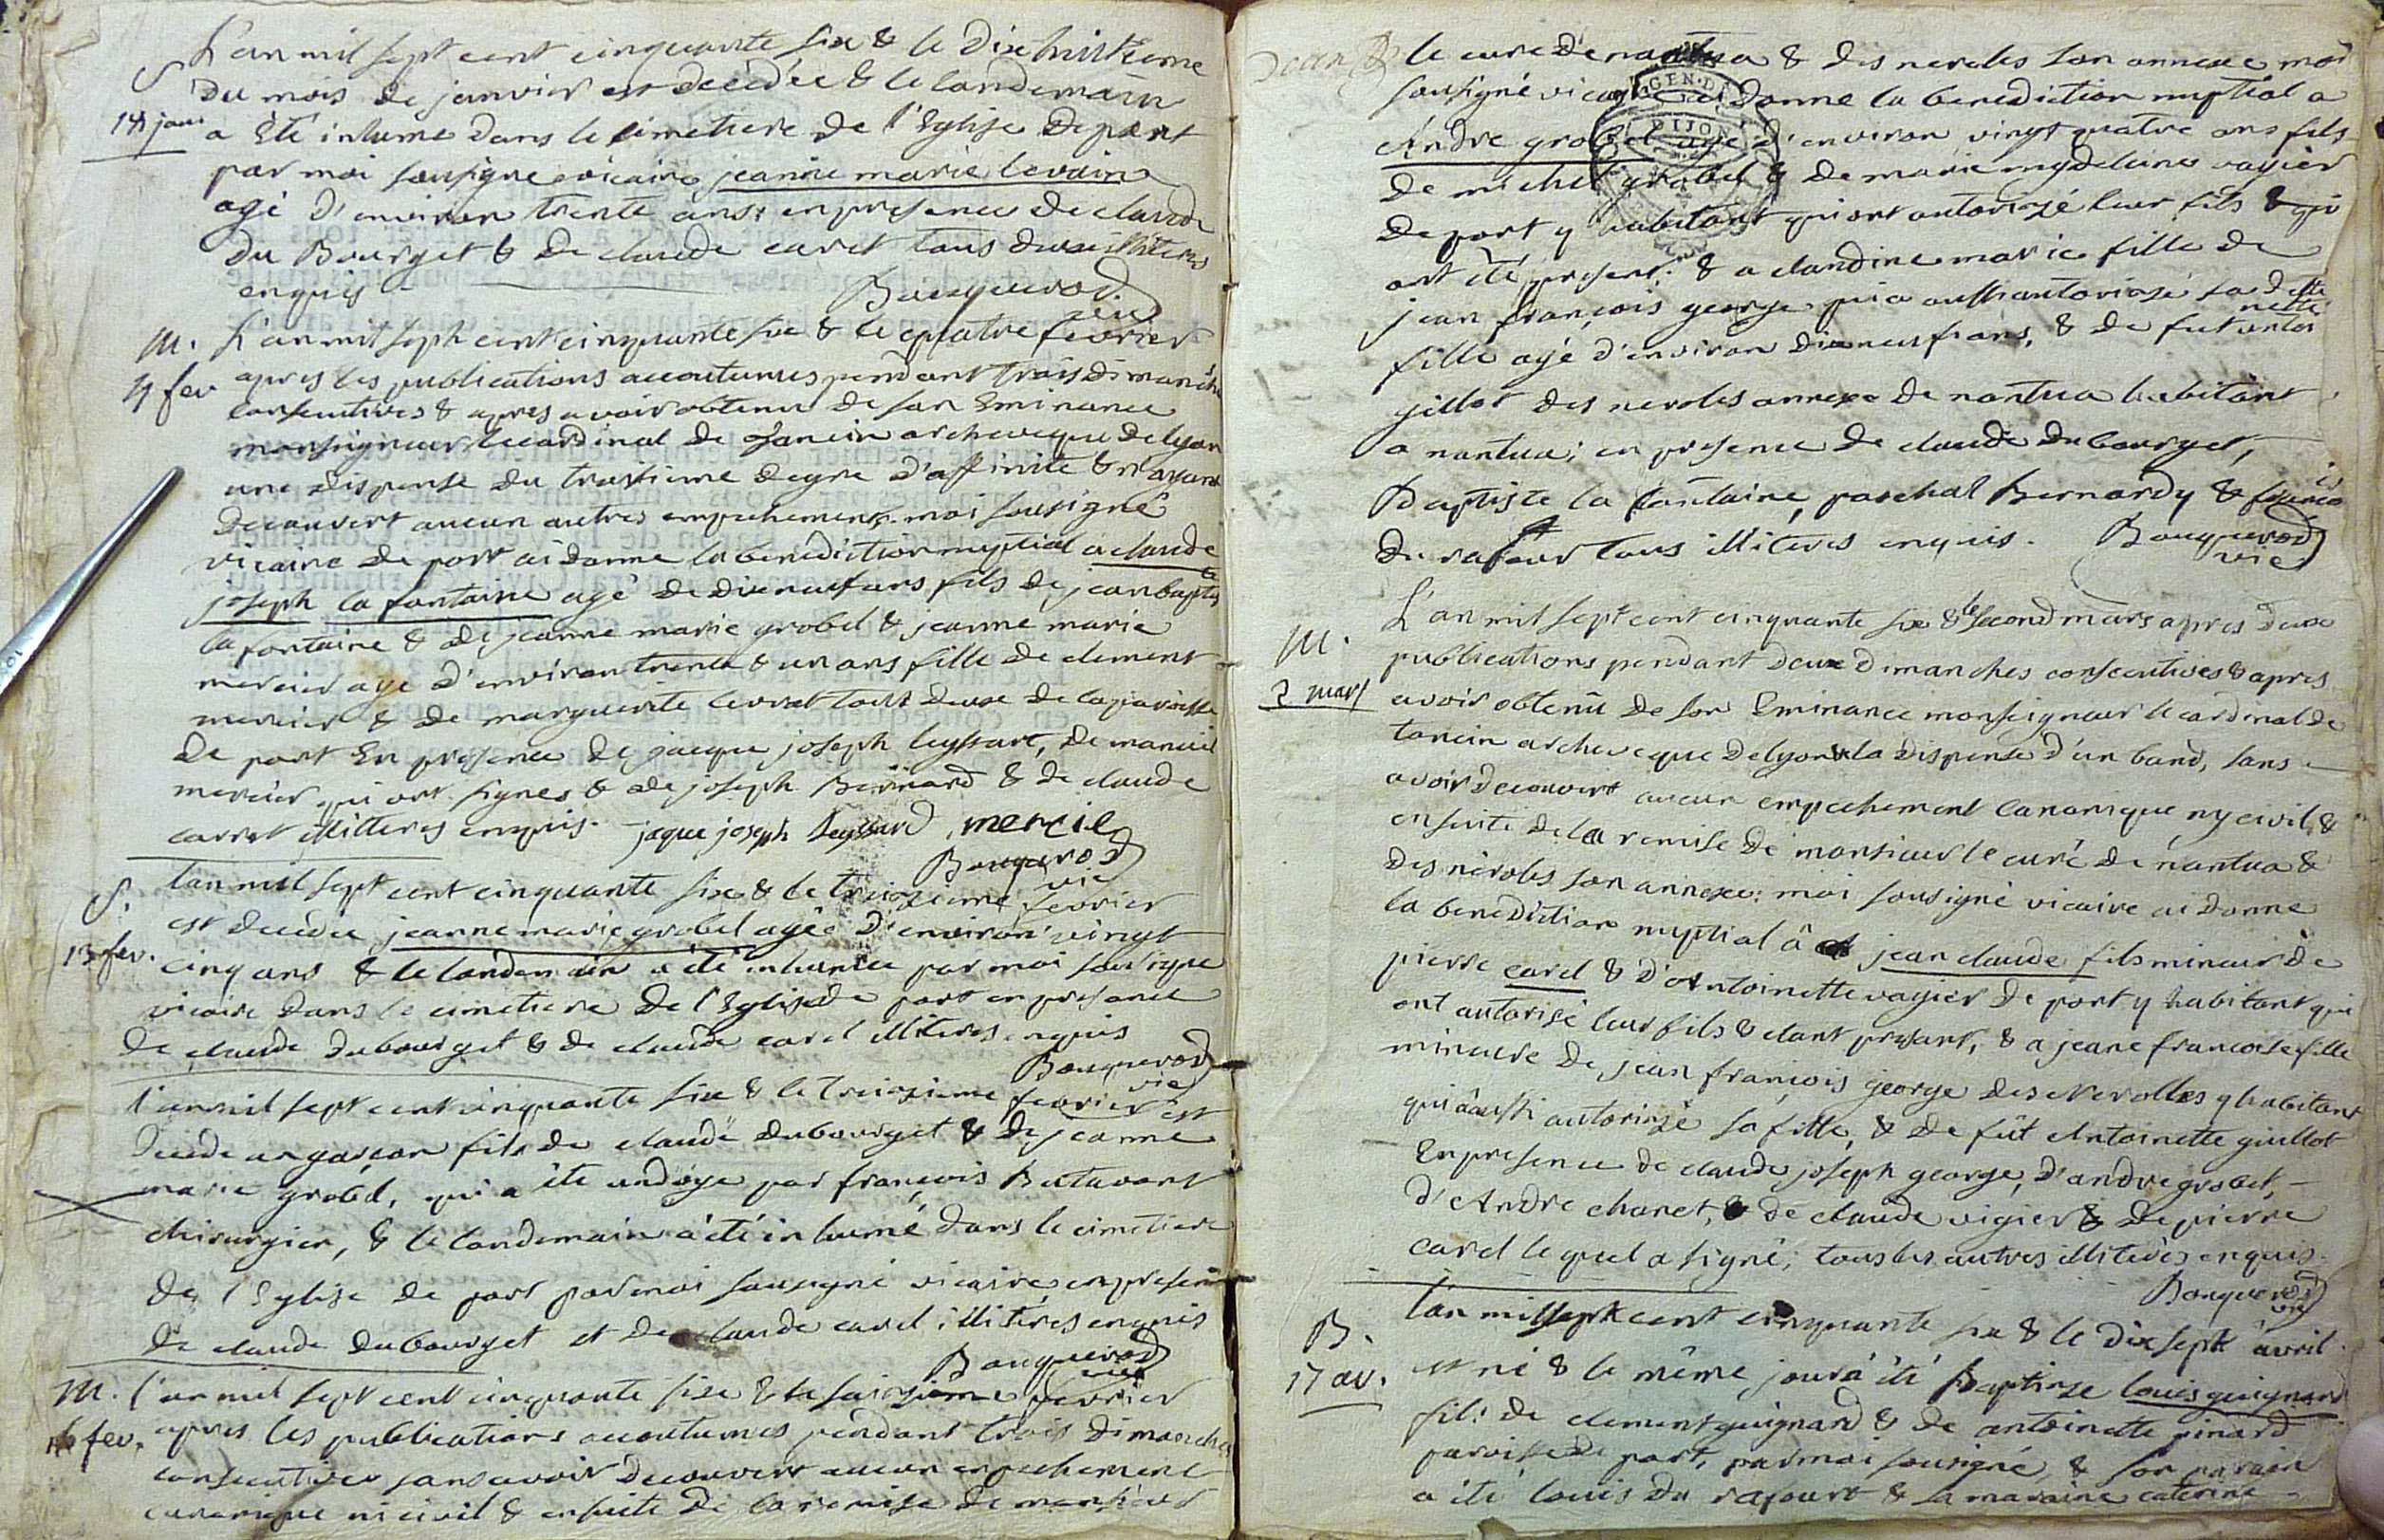 S
L'an mil sept cent cinquante six & le dix huitieme
du mois de janvier est decedée & le landemain
18 janv
a été inhumé dans le cimetiere de l'Eglise de port
par moi sousigné vicaire jeanne marie levrat
agé d'environ trente ans; en presence de claude
du Bourget & de claude carel tous deux illiteres
enquis
Bouquerod
vic
M.
L'an mil seph cent cinquante six & le quatre fevrier
4 fev
apres les publications accoutumes pendant trois dimanche
consecutives & apres avoir obtenu de son Eminance
monseigneur le cardinal de tancin archeveque de lyon
une dispense du troisieme degre d'affinité & n'ayant
decouvert aucun autres empechement moi sousigné
vicaire de port ai donne la benediction nuptial a claude
joseph la fontaine agé de dix neuf ans fils de jean baptiste
la fontaine & de jeanne marie grobel & jeanne marie
mercier agé d'environ trente & un ans fille de clement
mercier & de marguerite levrat tout deux de la paroisse
de port En presence de jacque joseph leyssart, de manuel
mercier qui ont signes & de joseph Bernard & de claude
carret illitteres enquis. jaque joseph leyssard mercie
Bouquerod
vic
S.
L'an mil sept cent cinquante six & le treizieme fevrier
est decedée jeanne marie grobel agée d'environ vingt
13 fev.
cinq ans & le landemain a été inhumée par moi sousigne
vicaire dans le cimetiere de l'Eglise de port en presence
de claude dubourget & de claude carel illiteres enquis
Bouquerod
vic
L'an mil sept cent cinquante six & le treizieme fevrier est
decede un garçon fils de claude dubourget & de jeanne
marie grobel, qui a été ondoyé par françois Butavant
chirurgien, & le landemain a été inhumé dans le cimetiere
de l'Eglise de port par moi sousigné vicaire en presence
de claude dubourget et de claude carel illitéres enquis
Bouquerod
vic
M.
L'an mil sept cent cinquante six & le saizieme fevrier
16 fev.
apres les publications accoutumes pendant trois dimanches
consecutives sans avoir decouvert aucun empechement
canonique ni civil & ensuite de la remise de monsieur
le curé de nantua & des neroles son annexe moi
sousigné vicaire ai donne la benediction nuptial a
GEN. DE
DIJON
Andre grobel agé d'environ vingt quatre ans fils
de michel grobel & de marie magdelaine vagier
de port y habitant qui ont autorizé leur fils & qui
ont été present; & a claudine marie fille de
jean françois george qui a aussi autorizé sa ditte
fille agé d'environ dix neuf ans, & de fut antoinette
gillot des neroles annexe de nantua habitant
a nantua; en presence de claude du bourget,
Baptiste la fontaine, paschal Bernardy & francois
du rafour tous illiteres enquis.
Bouquerod
vic
M.
L'an mil sept cent cinquante six & le second mars apres deux
publications pendant deux dimanches consecutives & apres
2 mars
avoir obtenu de son Eminance monseigneur le cardinal de
tancin archeveque de lyon la dispense d'un band, sans
avoir decouvert aucun empechement canonique ny civil, &
ensuite de la remise de monsieur le curé de nantua &
des néroles son annexe: moi sousigné vicaire ai donne
la benediction nuptial à jean claude fils mineur de
pierre carel & d'Antoinette vagier de port y habitant qui
ont autorisé leur fils & etant present, & a jeane francoise fille
mineure de jean françois george des Nerolles y habitant
qui a aussi autorizé sa fille, & de fût Antoinette guillot
En presence de claude joseph george, d'andre grobel,
d'Andre charet, & de claude vigier & de pierre
carel lequel a signé; tous les autres illiteres enquis.
Bouquerod
vic
B.
L'an mil sept cent cinquante six & le dix sept avril.
17 av.
est né & le même jour a été Baptize louis guignard
fils de clement guignard & de antoinette pinard
paroisse de port, par moi sousigné, & son parain
a été louis du rafour & sa maraine caterine